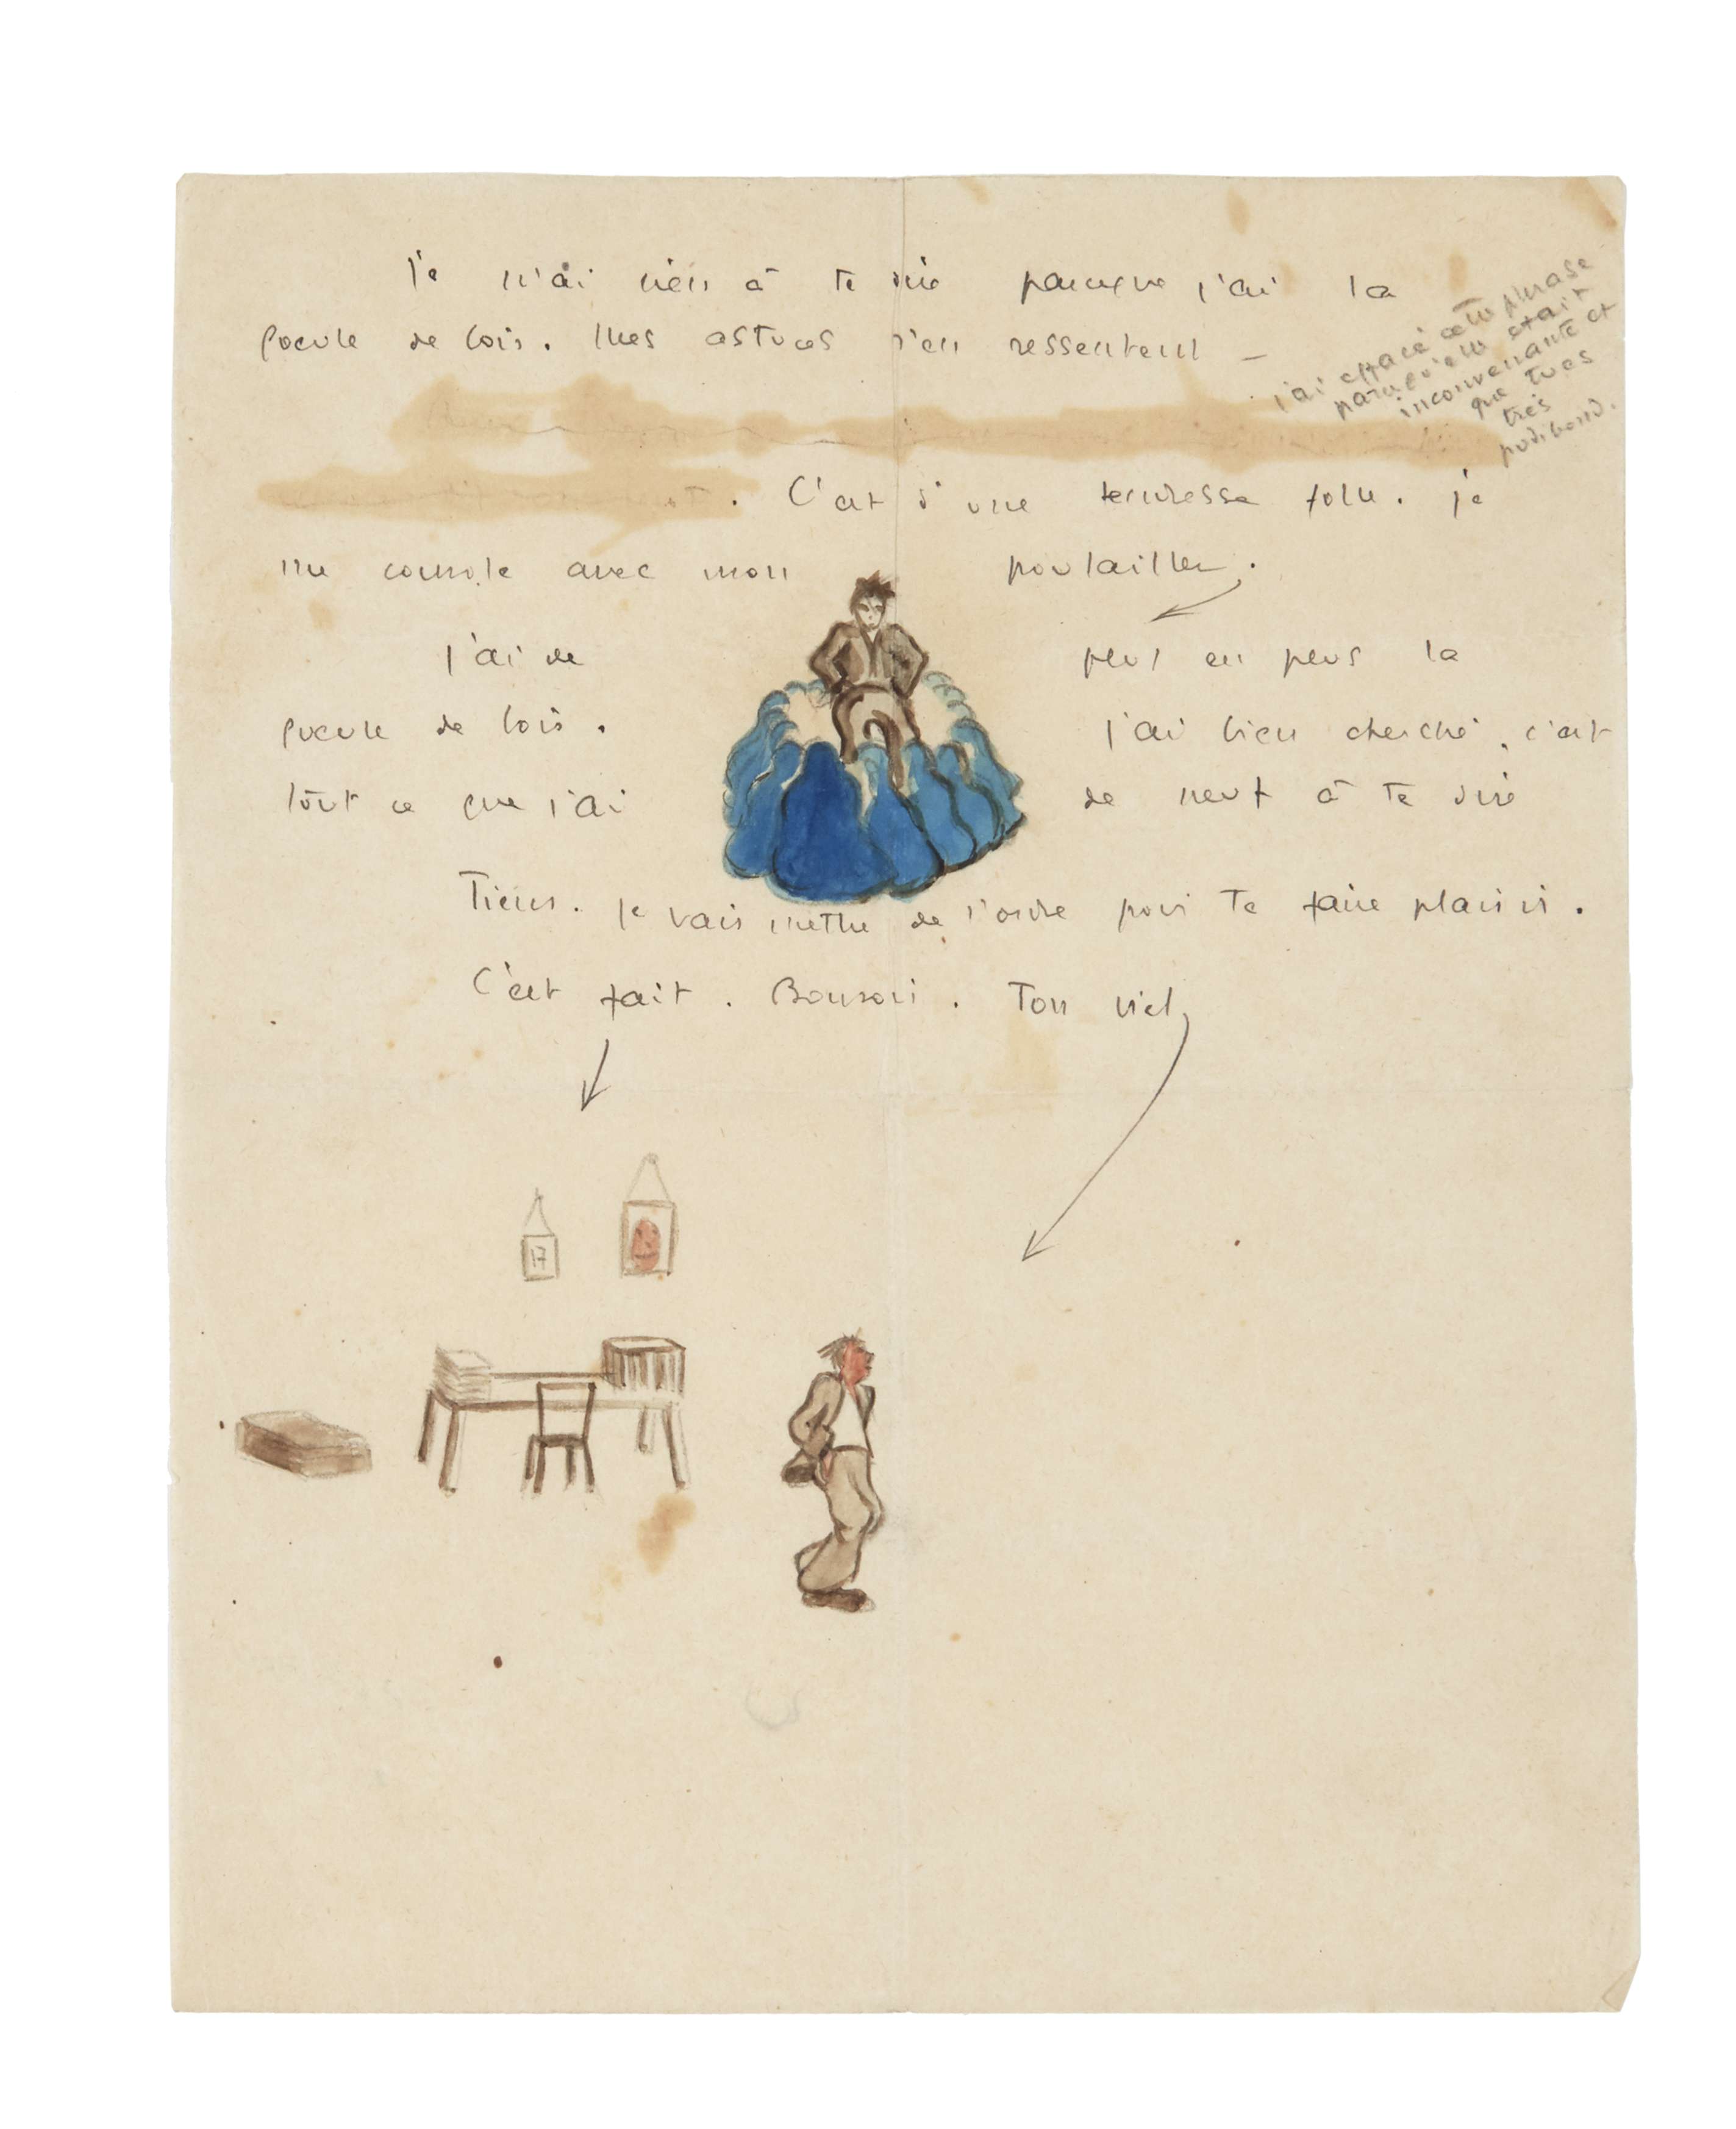 Je n'ai rien à te dire parceque j'ai la
gueule de bois. Mes astuces s'en ressentent –
j'ai effacé cette phrase
parcequ'elle était
inconvenante et
que tu es
très
pudibond.
. C'est d'une tendresse folle. Je
me console avec mon poulailler.
J'ai de plus en plus la
gueule de bois. J'ai bien cherché, c'est
tout ce que j'ai de neuf à te dire
Tiens. Je vais mettre de l'ordre pour te faire plaisir.
C'est fait. Bonsoir. Ton viel
17